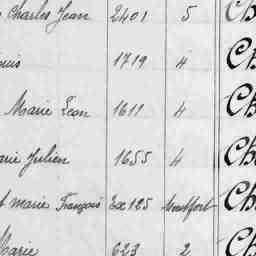 Charles Jean 2401 5 Ch
ouis 1719 4 Ch
Marie Leon 1611 4 Ch
arie Julien 1655 4 Ch
t marie François Ex 125 Montfort Ch
Marie 623 2 Ch